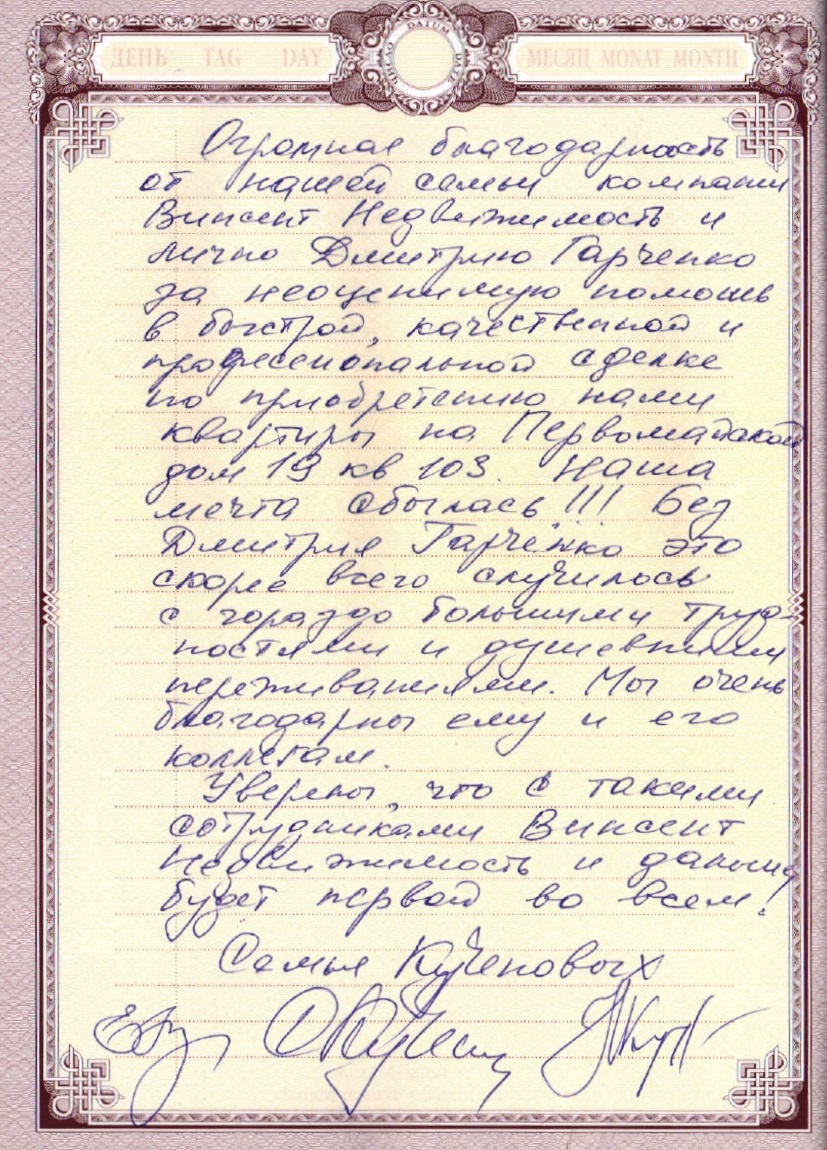 ДЕНЬ TAG DAY DATUM МЕСЯЦ MONAT MONTH
Огромная благодарность
от нашей семьи компании
Винсент Недвижимость и
лично Дмитрию Гарченко
за неоценимую помощь
в быстрой, качественной и
профессиональной сделке
по приобретению нами
квартиры на Первомайской
дом 19 кв 103. Наша
мечта сбылась!!! Без
Дмитрия Гарченко это
скорее всего случилось
с гораздо большими труд-
ностями и душевными
переживаниями. Мы очень
благодарны ему и его
коллегам.
Уверены, что с такими
сотрудниками Винсент
Недвижимость и дальше
будет первой во всем!
Семья Кученовых